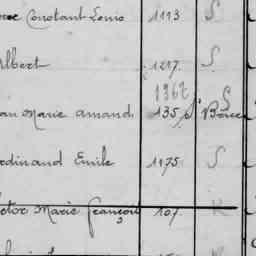 Constant Louis 1113 S
Albert 1217 S
1362
an Marie amand 135 S
erdinand Emile 1175 S
ctor Marie françois 107 K